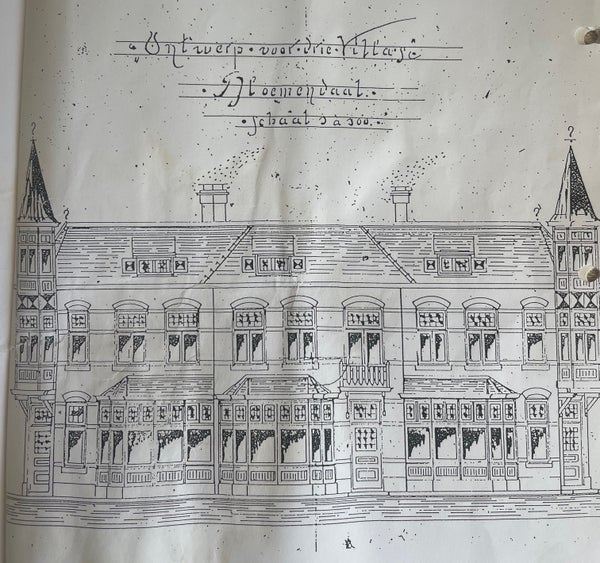 „Ontwerp·voor·drie·Villa's·"
·Bloemendaal·
schaal 1 a 100.